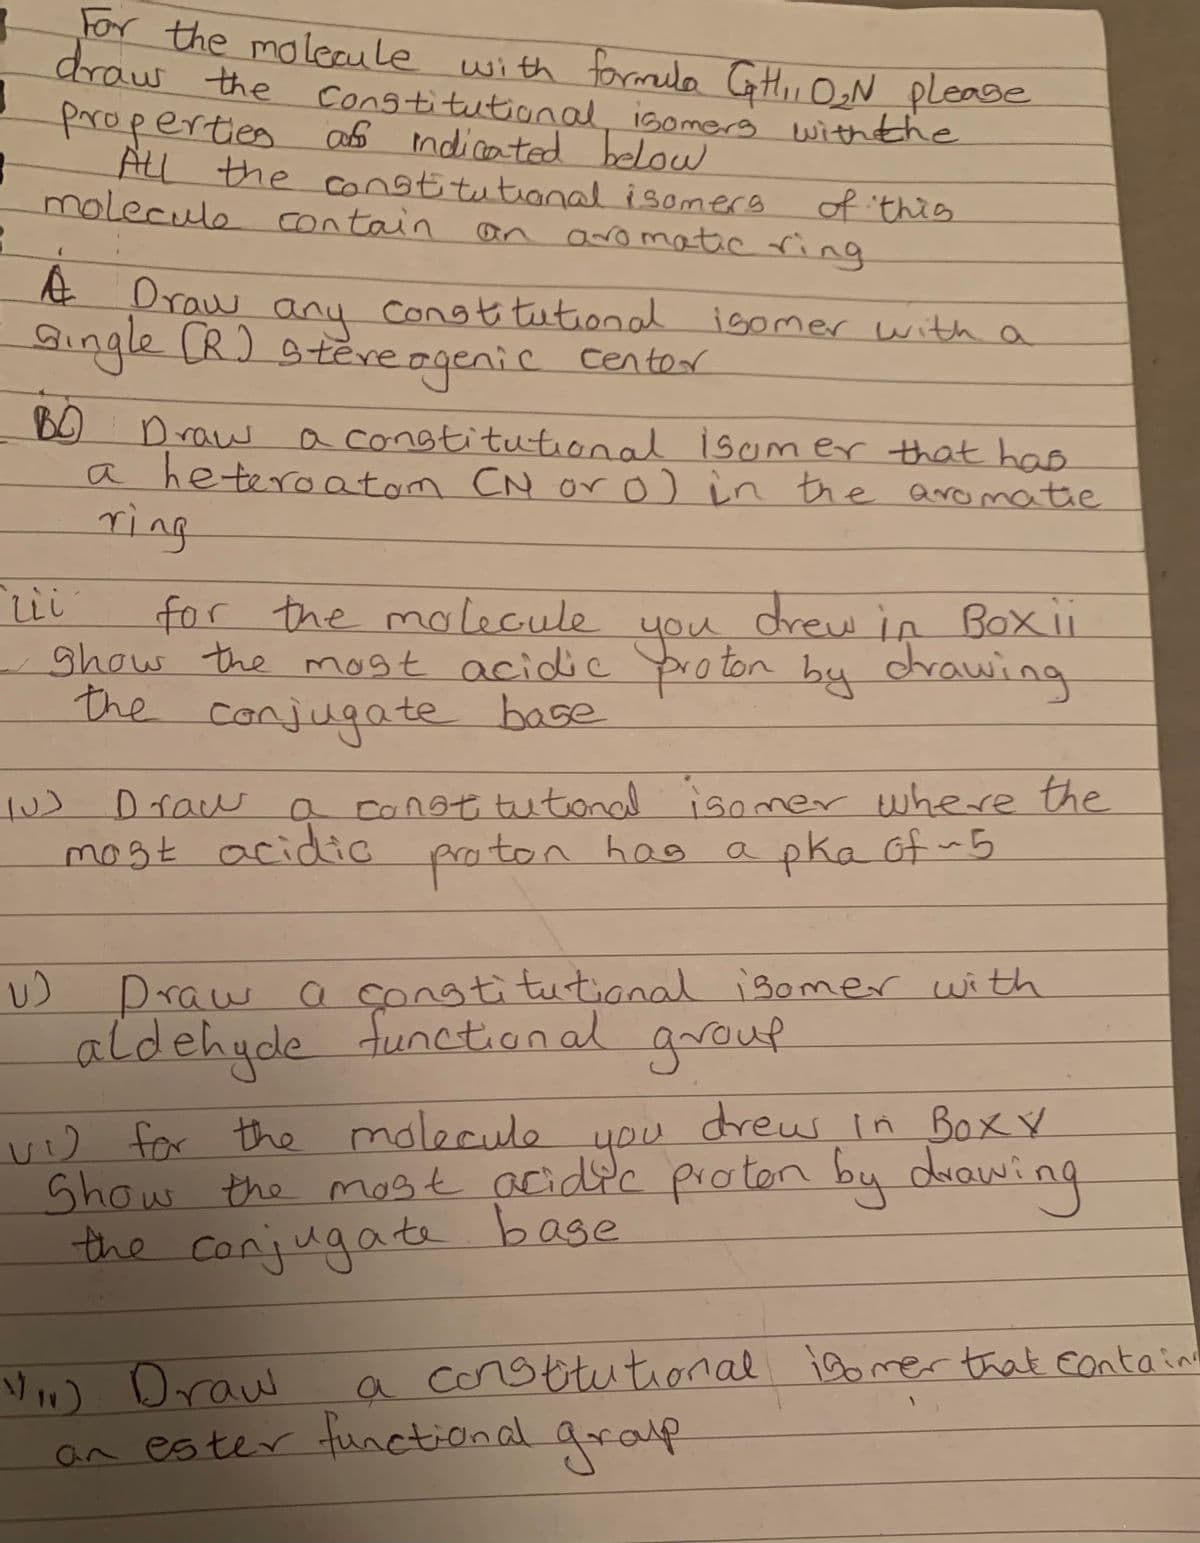 For the molecule with formula C9H11O2N please
draw the constitutional isomers with the
properties as indicated below
All the constitutional isomers of this
molecule contain an aromatic ring
A Draw any constitutional isomer with a
single (R) stereogenic center
Draw a constitutional isomer that has
a heteroatom (N or O) in the aromatic
ring
iii for the molecule you drew in Box ii
show the most acidic proton by drawing
the conjugate base
iv) Draw a constitutonal isomer where the
most acidic proton has a pka of ~5
v) Draw a constitutional isomer with
aldehyde functional group
vi) for the molecule you drew in Box V
Show the most acidic proton by drawing
the conjugate base
vii) Draw a constitutional isomer that contain
an ester functional group